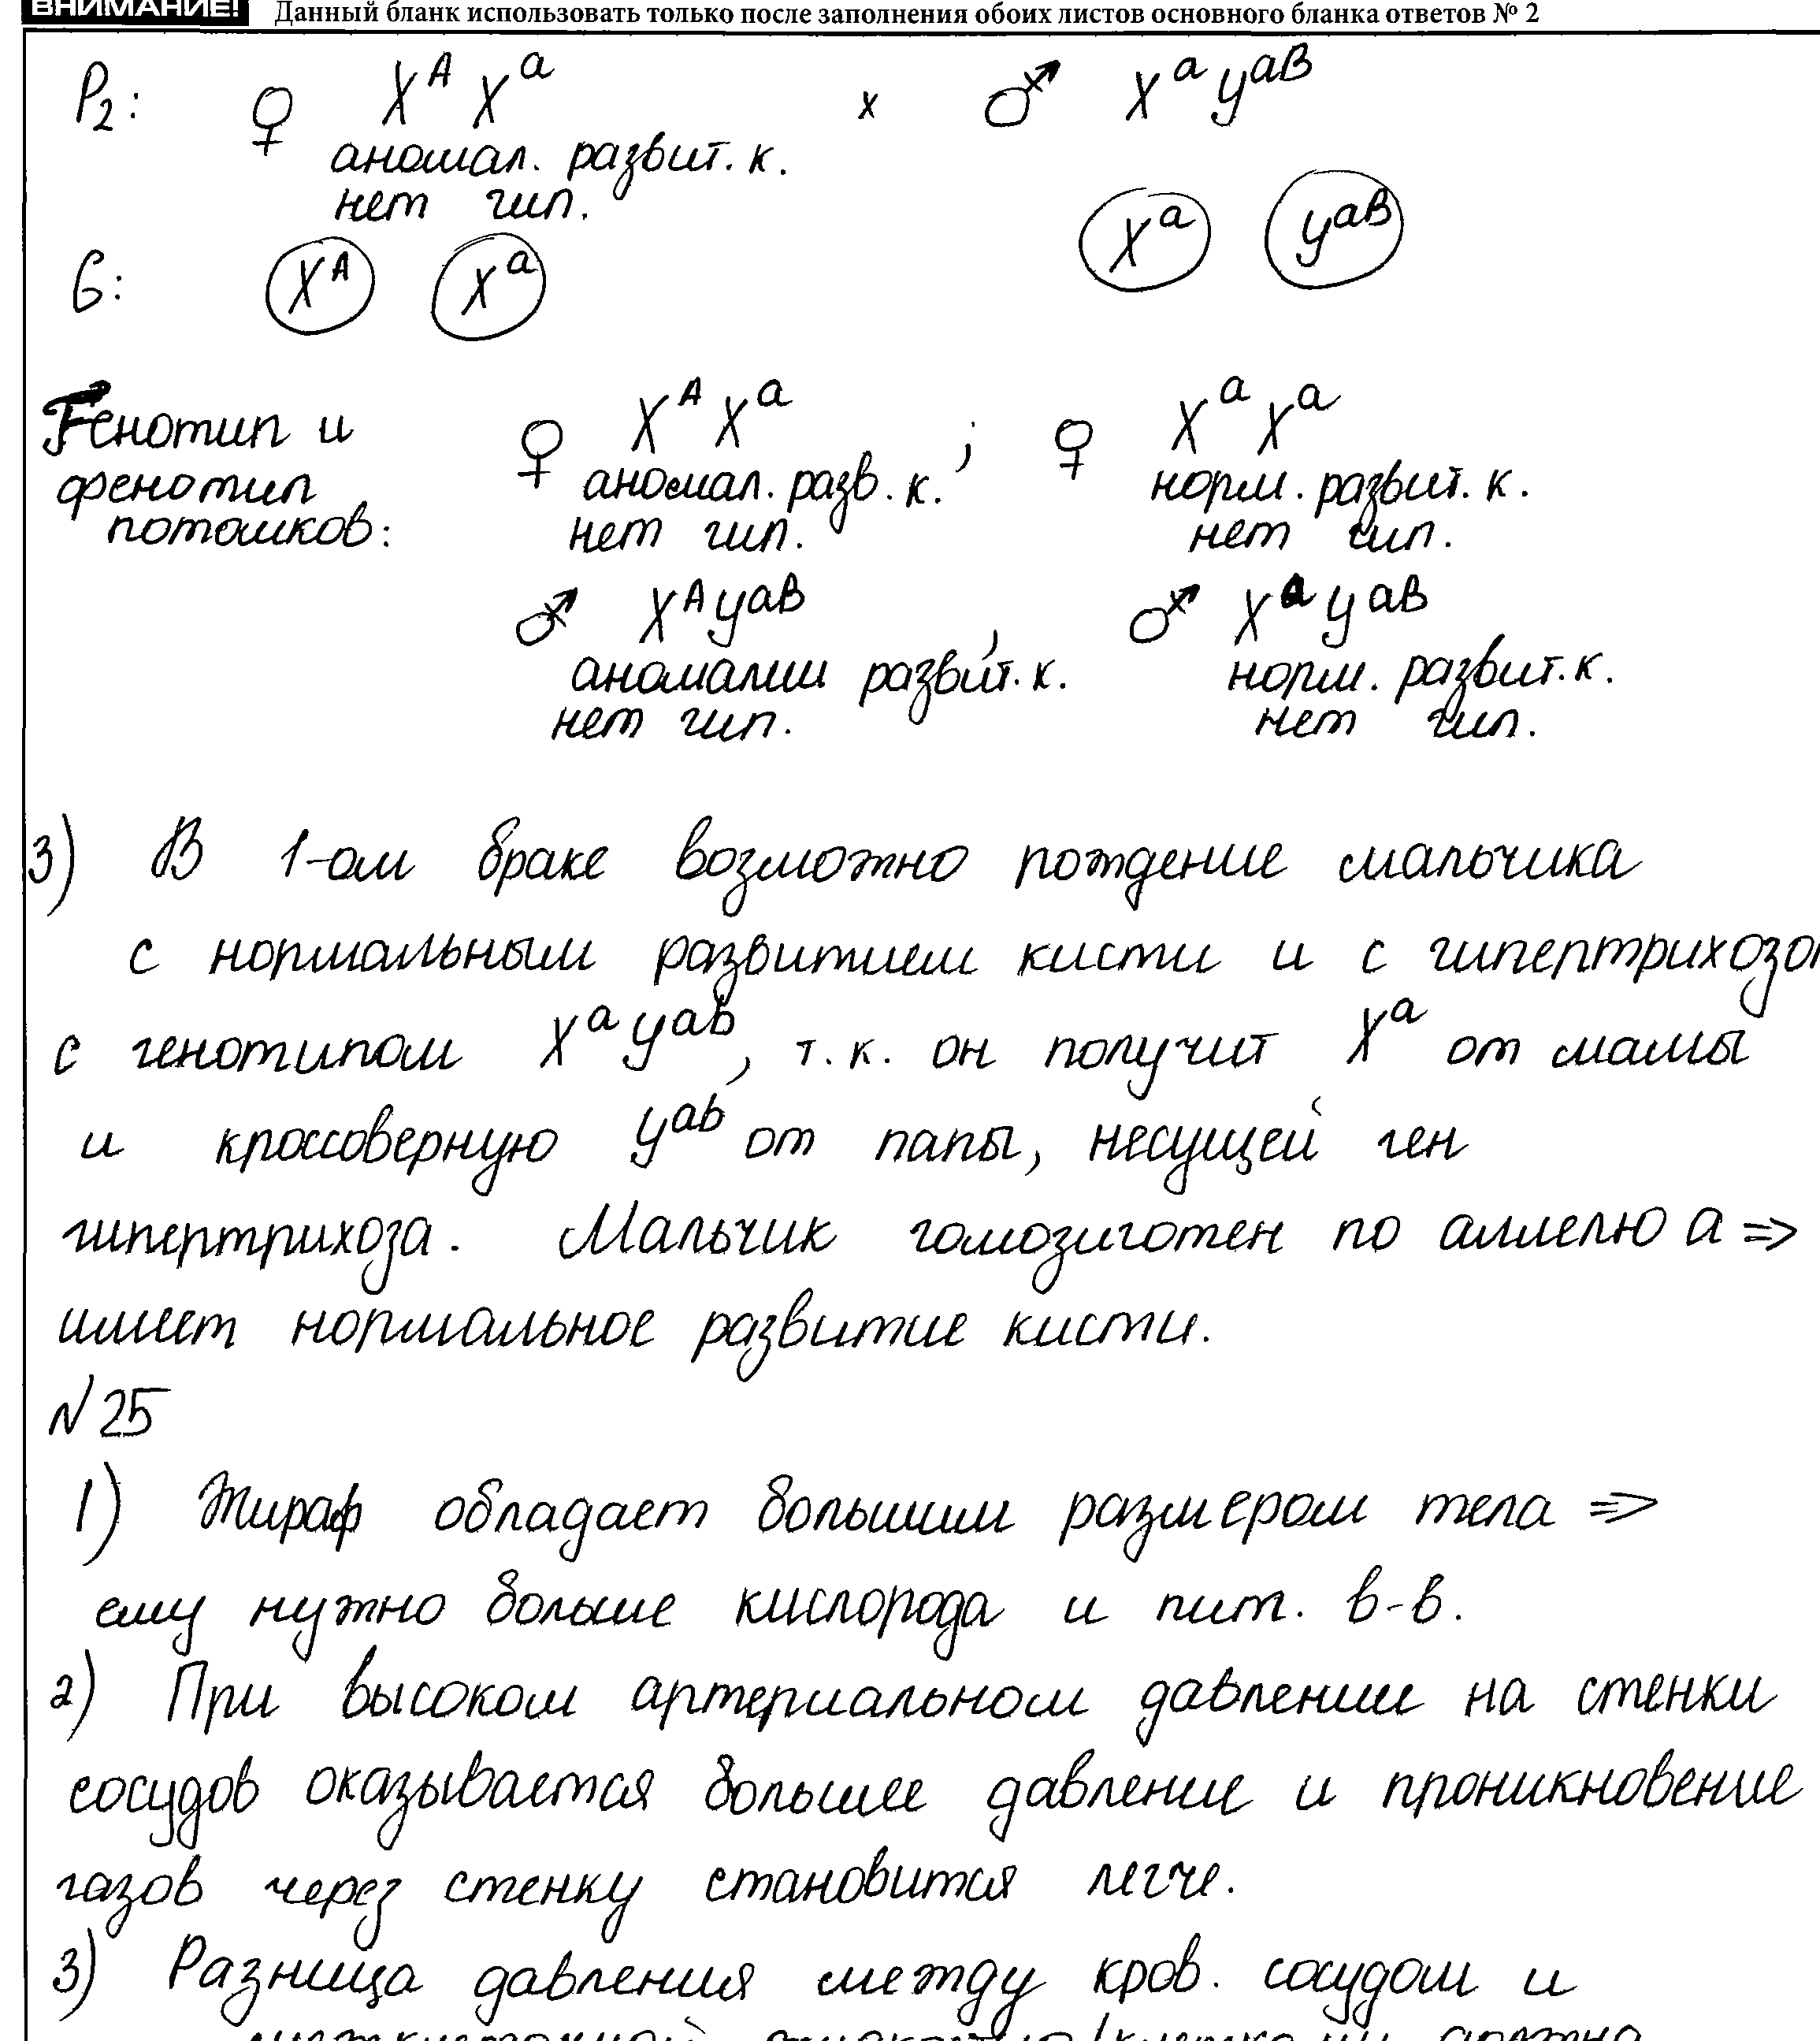 ВНИМАНИЕ! Данный бланк использовать только после заполнения обоих листов основного бланка ответов № 2
P₂: ♀ X^A X^a x ♂ X^a y^aB
аномал. развит. к.
нет гип.
G: X^A X^a X^a y^aB
Генотип и ♀ X^A X^a ; ♀ X^a X^a
фенотип аномал. разв. к. норм. развит. к.
потомков: нет гип. нет гип.
♂ X^A y^aB , ♂ X^a y^aB
аномалии развит. к. норм. развит. к.
нет гип. нет гип.
3) В 1-ом браке возможно рождение мальчика
с нормальным развитием кисти и с гипертрихозом
с генотипом X^a y^ab, т.к. он получит X^a от мамы
и кроссоверную y^ab от папы, несущей ген
гипертрихоза. Мальчик гомозиготен по аллелю a =>
имеет нормальное развитие кисти.
N25
1) Жираф обладает большим размером тела =>
ему нужно больше кислорода и пит. в-в.
2) При высоком артериальном давлении на стенки
сосудов оказывается большее давление и проникновение
газов через стенку становится легче.
3) Разница давления между кров. сосудом и